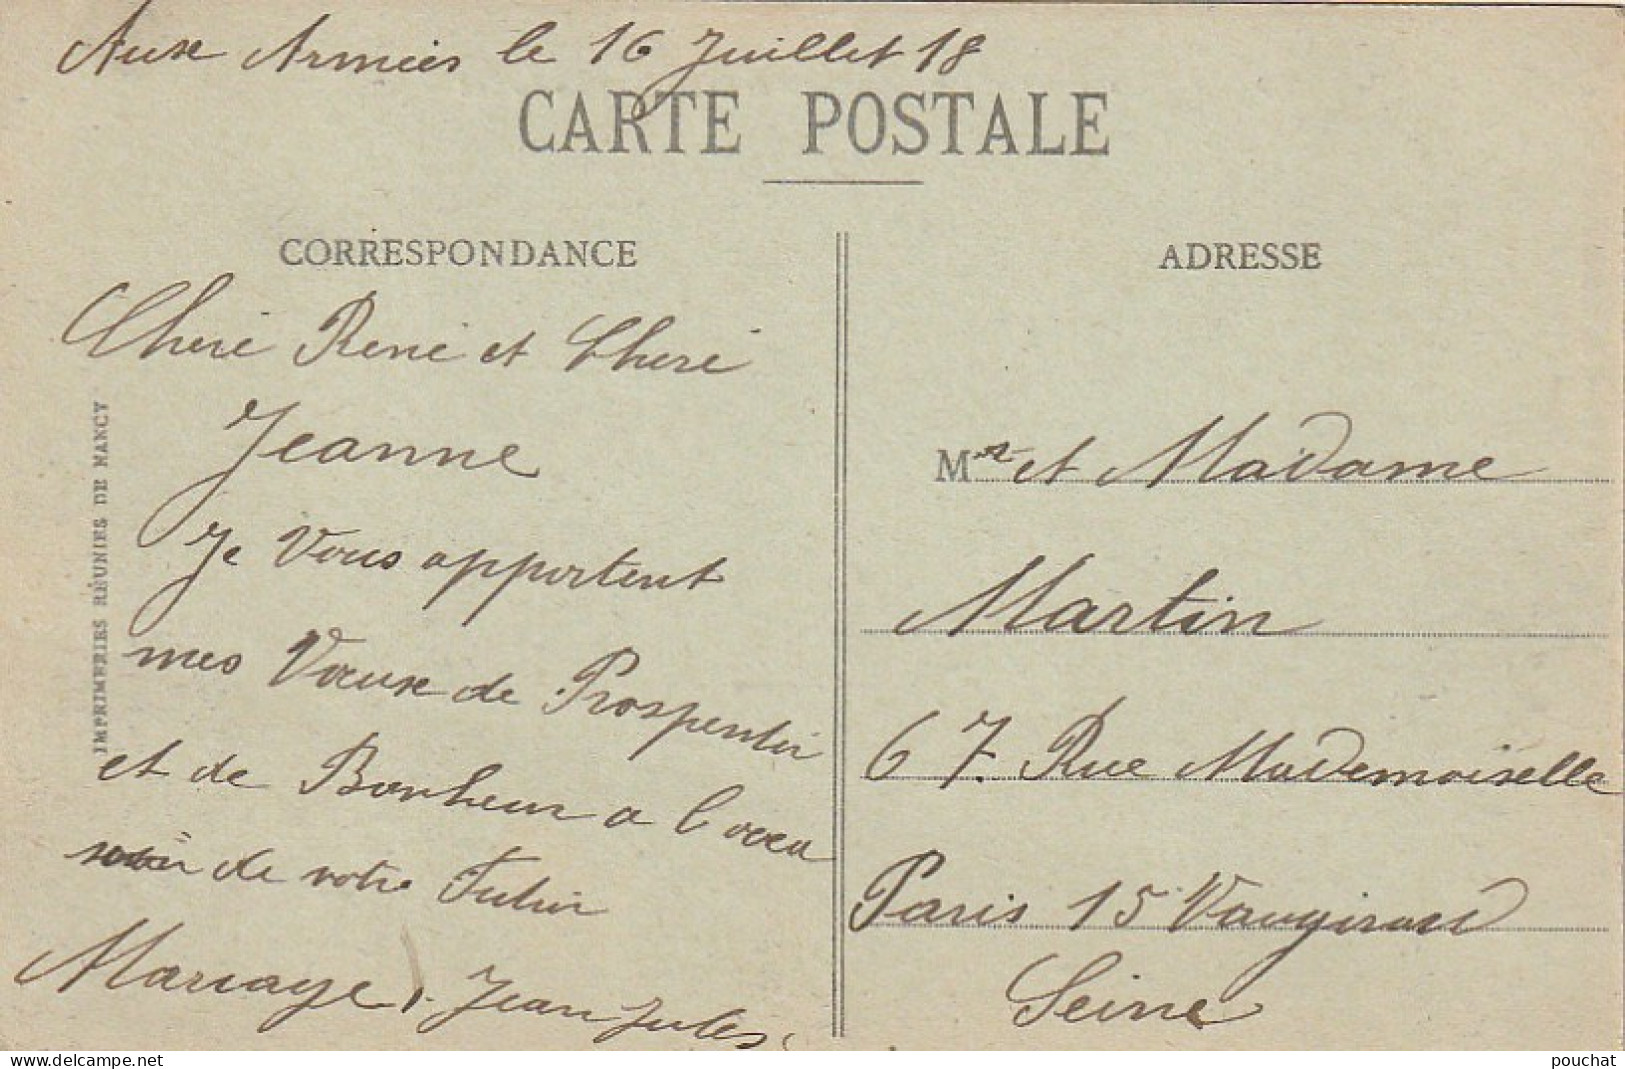 Aux Armées le 16 Juillet 18
CARTE POSTALE
CORRESPONDANCE
Cheré René et Cheré
Jeanne
Je Vous apportent
mes Vœux de Prosperitér
et de Bonheur a l'occa
de votre Futur
Mariage, Jean Jules
IMPRIMERIES RÉUNIES DE NANCY
ADRESSE
Mr et Madame
Martin
67. Rue Mademoiselle
Paris 15 Vaugirard
Seine
www.delcampe.net
pouchat